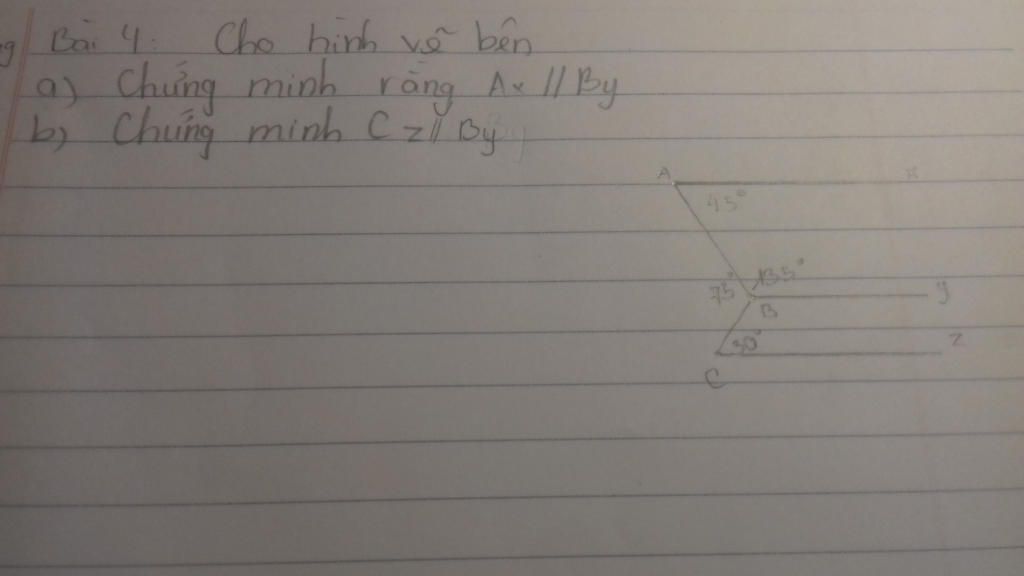 Bài 4: Cho hình vẽ bên
a) Chứng minh rằng Ax // By
b) Chứng minh Cz // By
A x
45°
75° 135°
B y
30° z
C